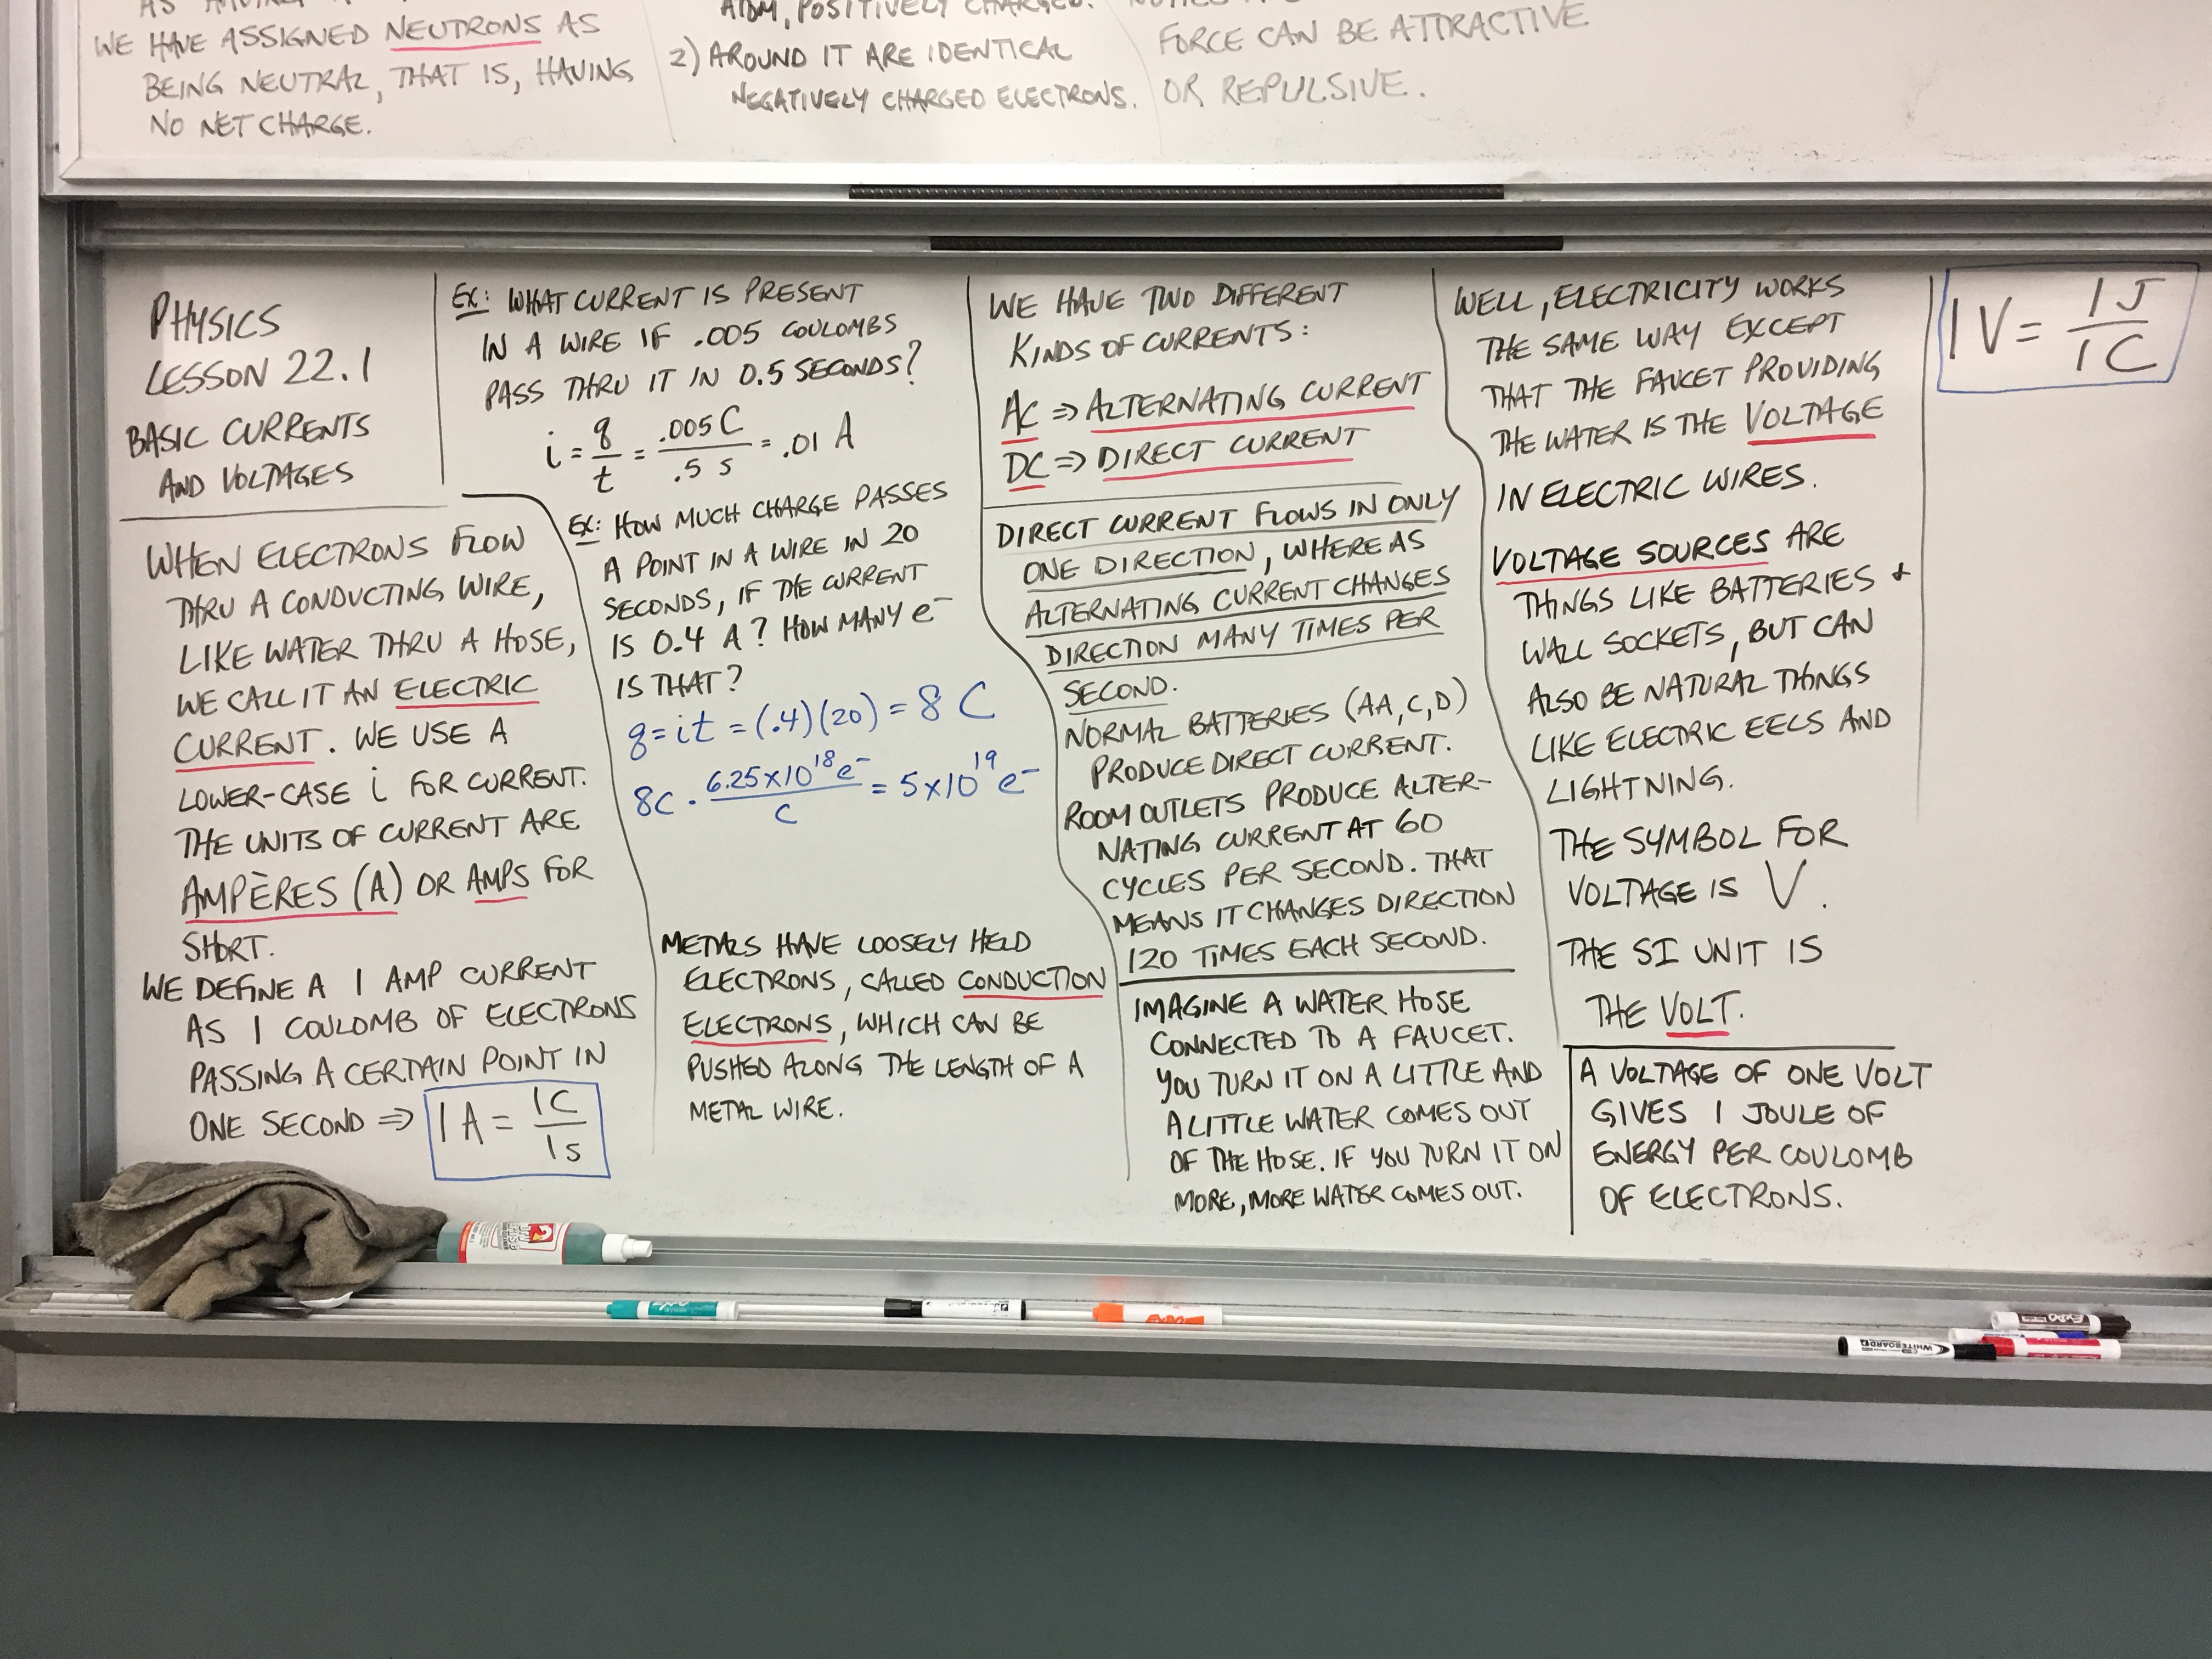 WE HAVE ASSIGNED NEUTRONS AS
BEING NEUTRAL, THAT IS, HAVING
NO NET CHARGE.
ATOM, POSITIVELY CHARGED.
2) AROUND IT ARE IDENTICAL
NEGATIVELY CHARGED ELECTRONS.
FORCE CAN BE ATTRACTIVE
OR REPULSIVE.
PHYSICS
LESSON 22.1
BASIC CURRENTS
AND VOLTAGES
WHEN ELECTRONS FLOW
THRU A CONDUCTING WIRE,
LIKE WATER THRU A HOSE,
WE CALL IT AN ELECTRIC
CURRENT. WE USE A
LOWER-CASE i FOR CURRENT.
THE UNITS OF CURRENT ARE
AMPÈRES (A) OR AMPS FOR
SHORT.
WE DEFINE A 1 AMP CURRENT
AS 1 COULOMB OF ELECTRONS
PASSING A CERTAIN POINT IN
ONE SECOND ⇒ 1 A = 1C/1s
EX: WHAT CURRENT IS PRESENT
IN A WIRE IF .005 COULOMBS
PASS THRU IT IN 0.5 SECONDS?
i = q/t = .005 C/.5 s = .01 A
EX: HOW MUCH CHARGE PASSES
A POINT IN A WIRE IN 20
SECONDS, IF THE CURRENT
IS 0.4 A? HOW MANY e⁻
IS THAT?
q = it = (.4)(20) = 8 C
8C · 6.25×10¹⁸e⁻/C = 5×10¹⁹ e⁻
METALS HAVE LOOSELY HELD
ELECTRONS, CALLED CONDUCTION
ELECTRONS, WHICH CAN BE
PUSHED ALONG THE LENGTH OF A
METAL WIRE.
WE HAVE TWO DIFFERENT
KINDS OF CURRENTS:
AC ⇒ ALTERNATING CURRENT
DC ⇒ DIRECT CURRENT
DIRECT CURRENT FLOWS IN ONLY
ONE DIRECTION, WHERE AS
ALTERNATING CURRENT CHANGES
DIRECTION MANY TIMES PER
SECOND.
NORMAL BATTERIES (AA, C, D)
PRODUCE DIRECT CURRENT.
ROOM OUTLETS PRODUCE ALTER-
NATING CURRENT AT 60
CYCLES PER SECOND. THAT
MEANS IT CHANGES DIRECTION
120 TIMES EACH SECOND.
IMAGINE A WATER HOSE
CONNECTED TO A FAUCET.
YOU TURN IT ON A LITTLE AND
A LITTLE WATER COMES OUT
OF THE HOSE. IF YOU TURN IT ON
MORE, MORE WATER COMES OUT.
WELL, ELECTRICITY WORKS
THE SAME WAY EXCEPT
THAT THE FAUCET PROVIDING
THE WATER IS THE VOLTAGE
IN ELECTRIC WIRES.
VOLTAGE SOURCES ARE
THINGS LIKE BATTERIES +
WALL SOCKETS, BUT CAN
ALSO BE NATURAL THINGS
LIKE ELECTRIC EELS AND
LIGHTNING.
THE SYMBOL FOR
VOLTAGE IS V.
THE SI UNIT IS
THE VOLT.
A VOLTAGE OF ONE VOLT
GIVES 1 JOULE OF
ENERGY PER COULOMB
OF ELECTRONS.
1 V = 1 J/1 C
EXPO
EXPO
EXPO
WHITEBOARD